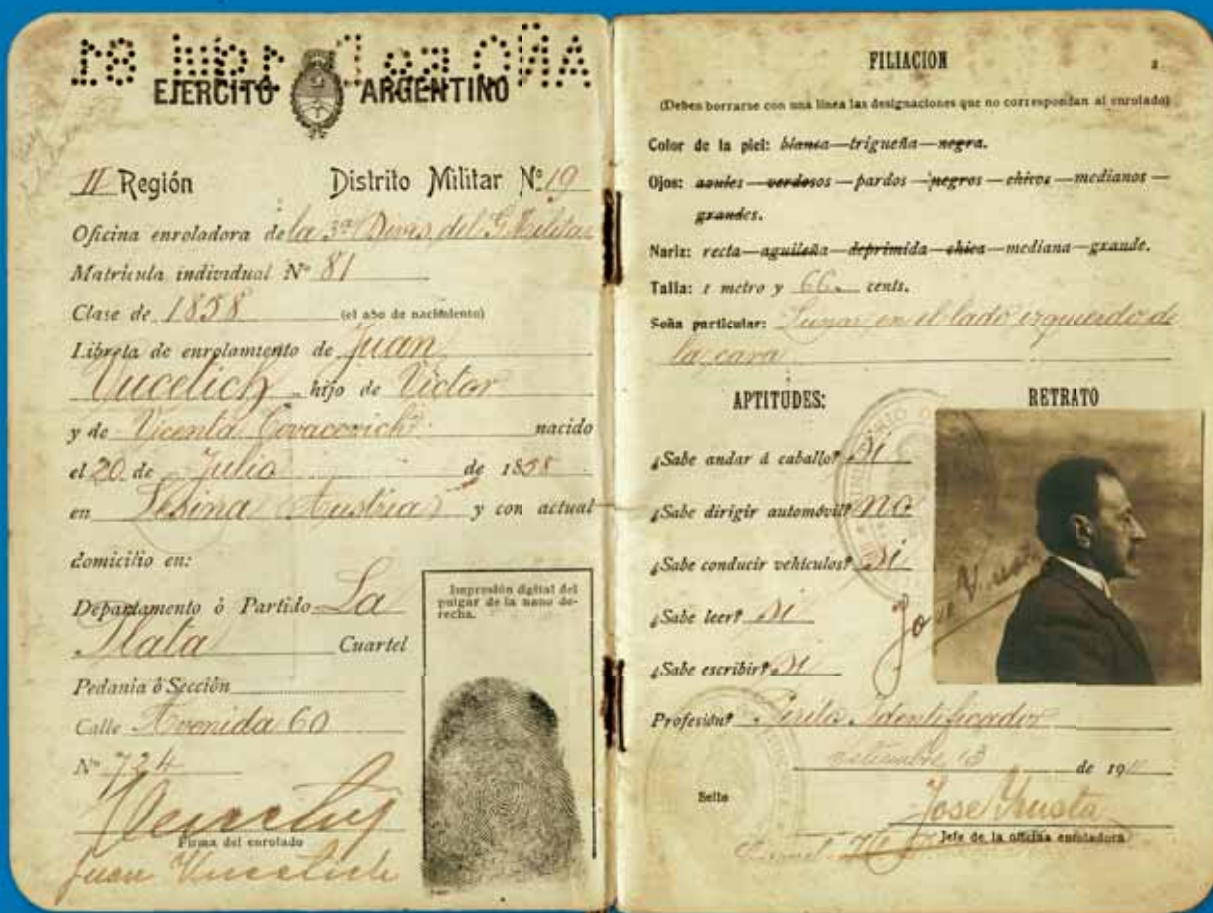 EJERCITO ARGENTINO
II Región Distrito Militar Nº 19
Oficina enroladora de la 3ª Divis. del G. Militar
Matrícula individual Nº 81
Clase de 1858 (el año de nacimiento)
Libreta de enrolamiento de Juan
Vucetich hijo de Victor
y de Vicenta Covacevich nacido
el 20 de Julio de 1858
en Lesina Austria y con actual
domicilio en:
Departamento ó Partido La
Plata Cuartel
Pedania ó Sección
Calle Avenida 60
Nº 724
Firma del enrolado
Juan Vucetich
Impresión dgital del
pulgar de la mano de-
recha.
FILIACION
2
(Deben borrarse con una línea las designaciones que no correspondan al enrolado)
Color de la piel: blanca—trigueña—negra.
Ojos: azules—verdosos—pardos—negros—chicos—medianos—
grandes.
Nariz: recta—aguileña—deprimida—chica—mediana—grande.
Talla: 1 metro y 66 cents.
Seña particular: Lunar en el lado izquierdo de
la cara
APTITUDES: RETRATO
¿Sabe andar á caballo? Si
¿Sabe dirigir automóvil? no
¿Sabe conducir vehículos? Si
¿Sabe leer? Si
¿Sabe escribir? Si
Profesión? Perito Identificador
setiembre 13 de 1911
Sello
Jefe de la oficina enroladora